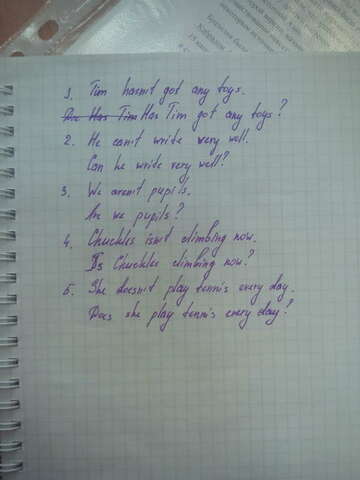 Вредина была
1. Tim hasn't got any toys.
Has Tim Has Tim got any toys?
2. He can't write very well.
Can he write very well?
3. We aren't pupils.
Are we pupils?
4. Chuckles isn't climbing now.
Is Chuckles climbing now?
5. She doesn't play tennis every day.
Does she play tennis every day?